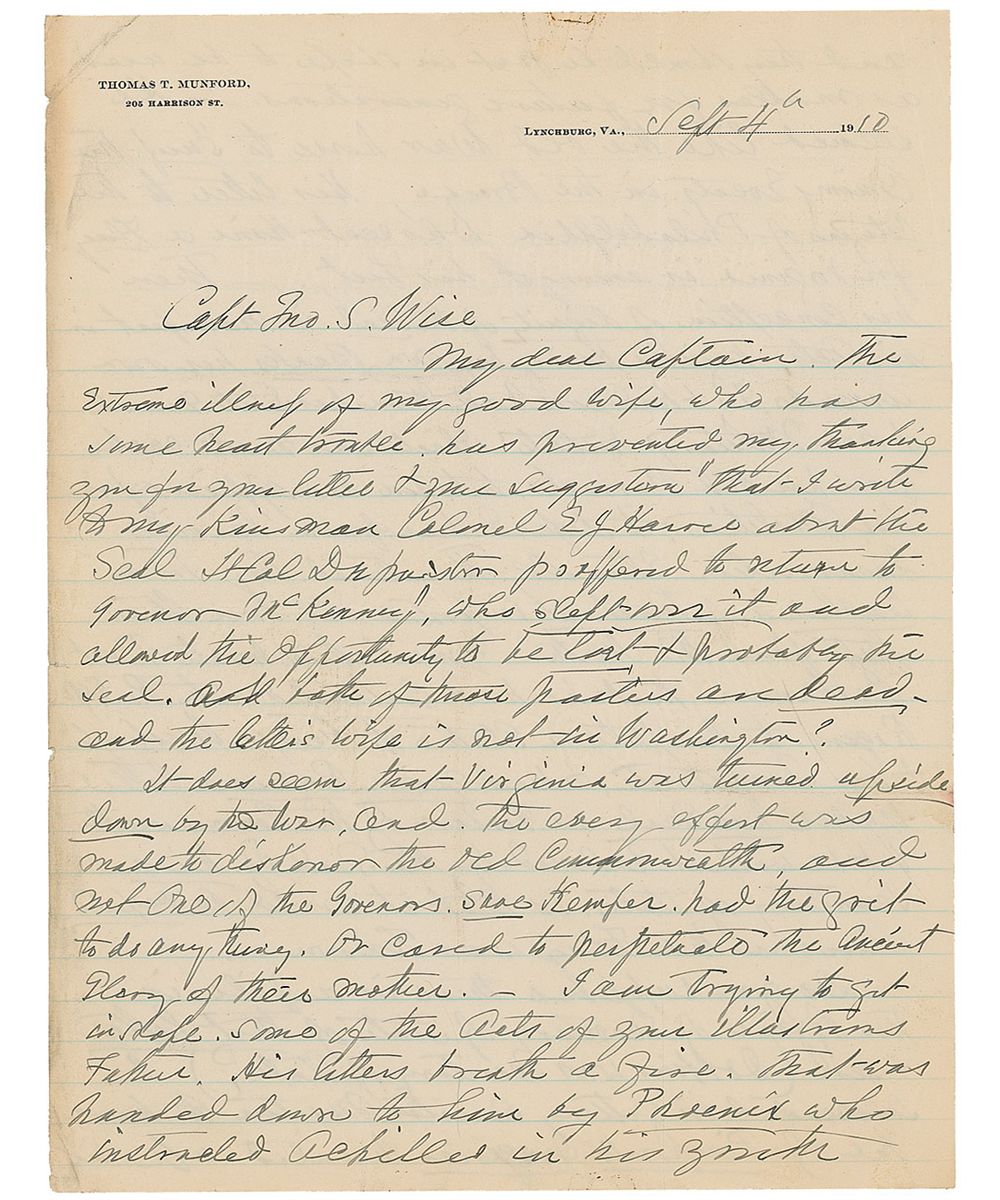 THOMAS T. MUNFORD,
205 HARRISON ST.
LYNCHBURG, VA., Sept 4th 1910
Capt Jno. S. Wise
My dear Captain. The
Extreme illness of my good wife, who has
some heart trouble. has prevented my thanking
you for your letter & your suggestion "that I write
to my Kinsman Colonel E J Harvie about the
Seal Lt Col proffered to return to
Govenor McKenney", who slept over it and
allowed the opportunity to be lost & probably the
seal. and both of those parties are dead -
and the latters wife is not in Washington?
It does seem that Virginia was turned upside
down by the War, and. the every effort was
made to dishonor the old Commonwealth, and
not One of the Govenors. save Kemper. had the grit
to do any thing. Or cared to perpetuate the Ancient
Glory of their mother. - I am trying to get
in shape. some of the Acts of your illustrious
Father. His letters breath a fire. that was
handed down to him by Phoenix who
instructed Achilles in his youth